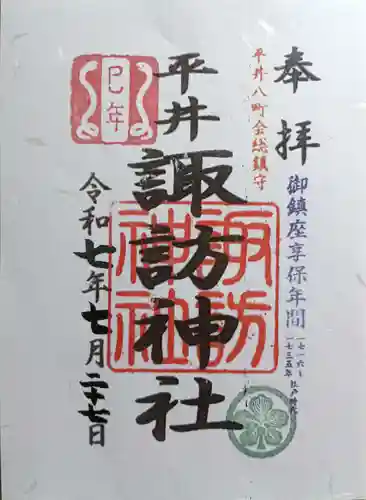 奉拝
平井八町会総鎮守
御鎮座享保年間
一七一六〜
一七三五年 江戸時代
平井
諏訪神社
諏訪
神社
巳年
令和七年七月二十七日